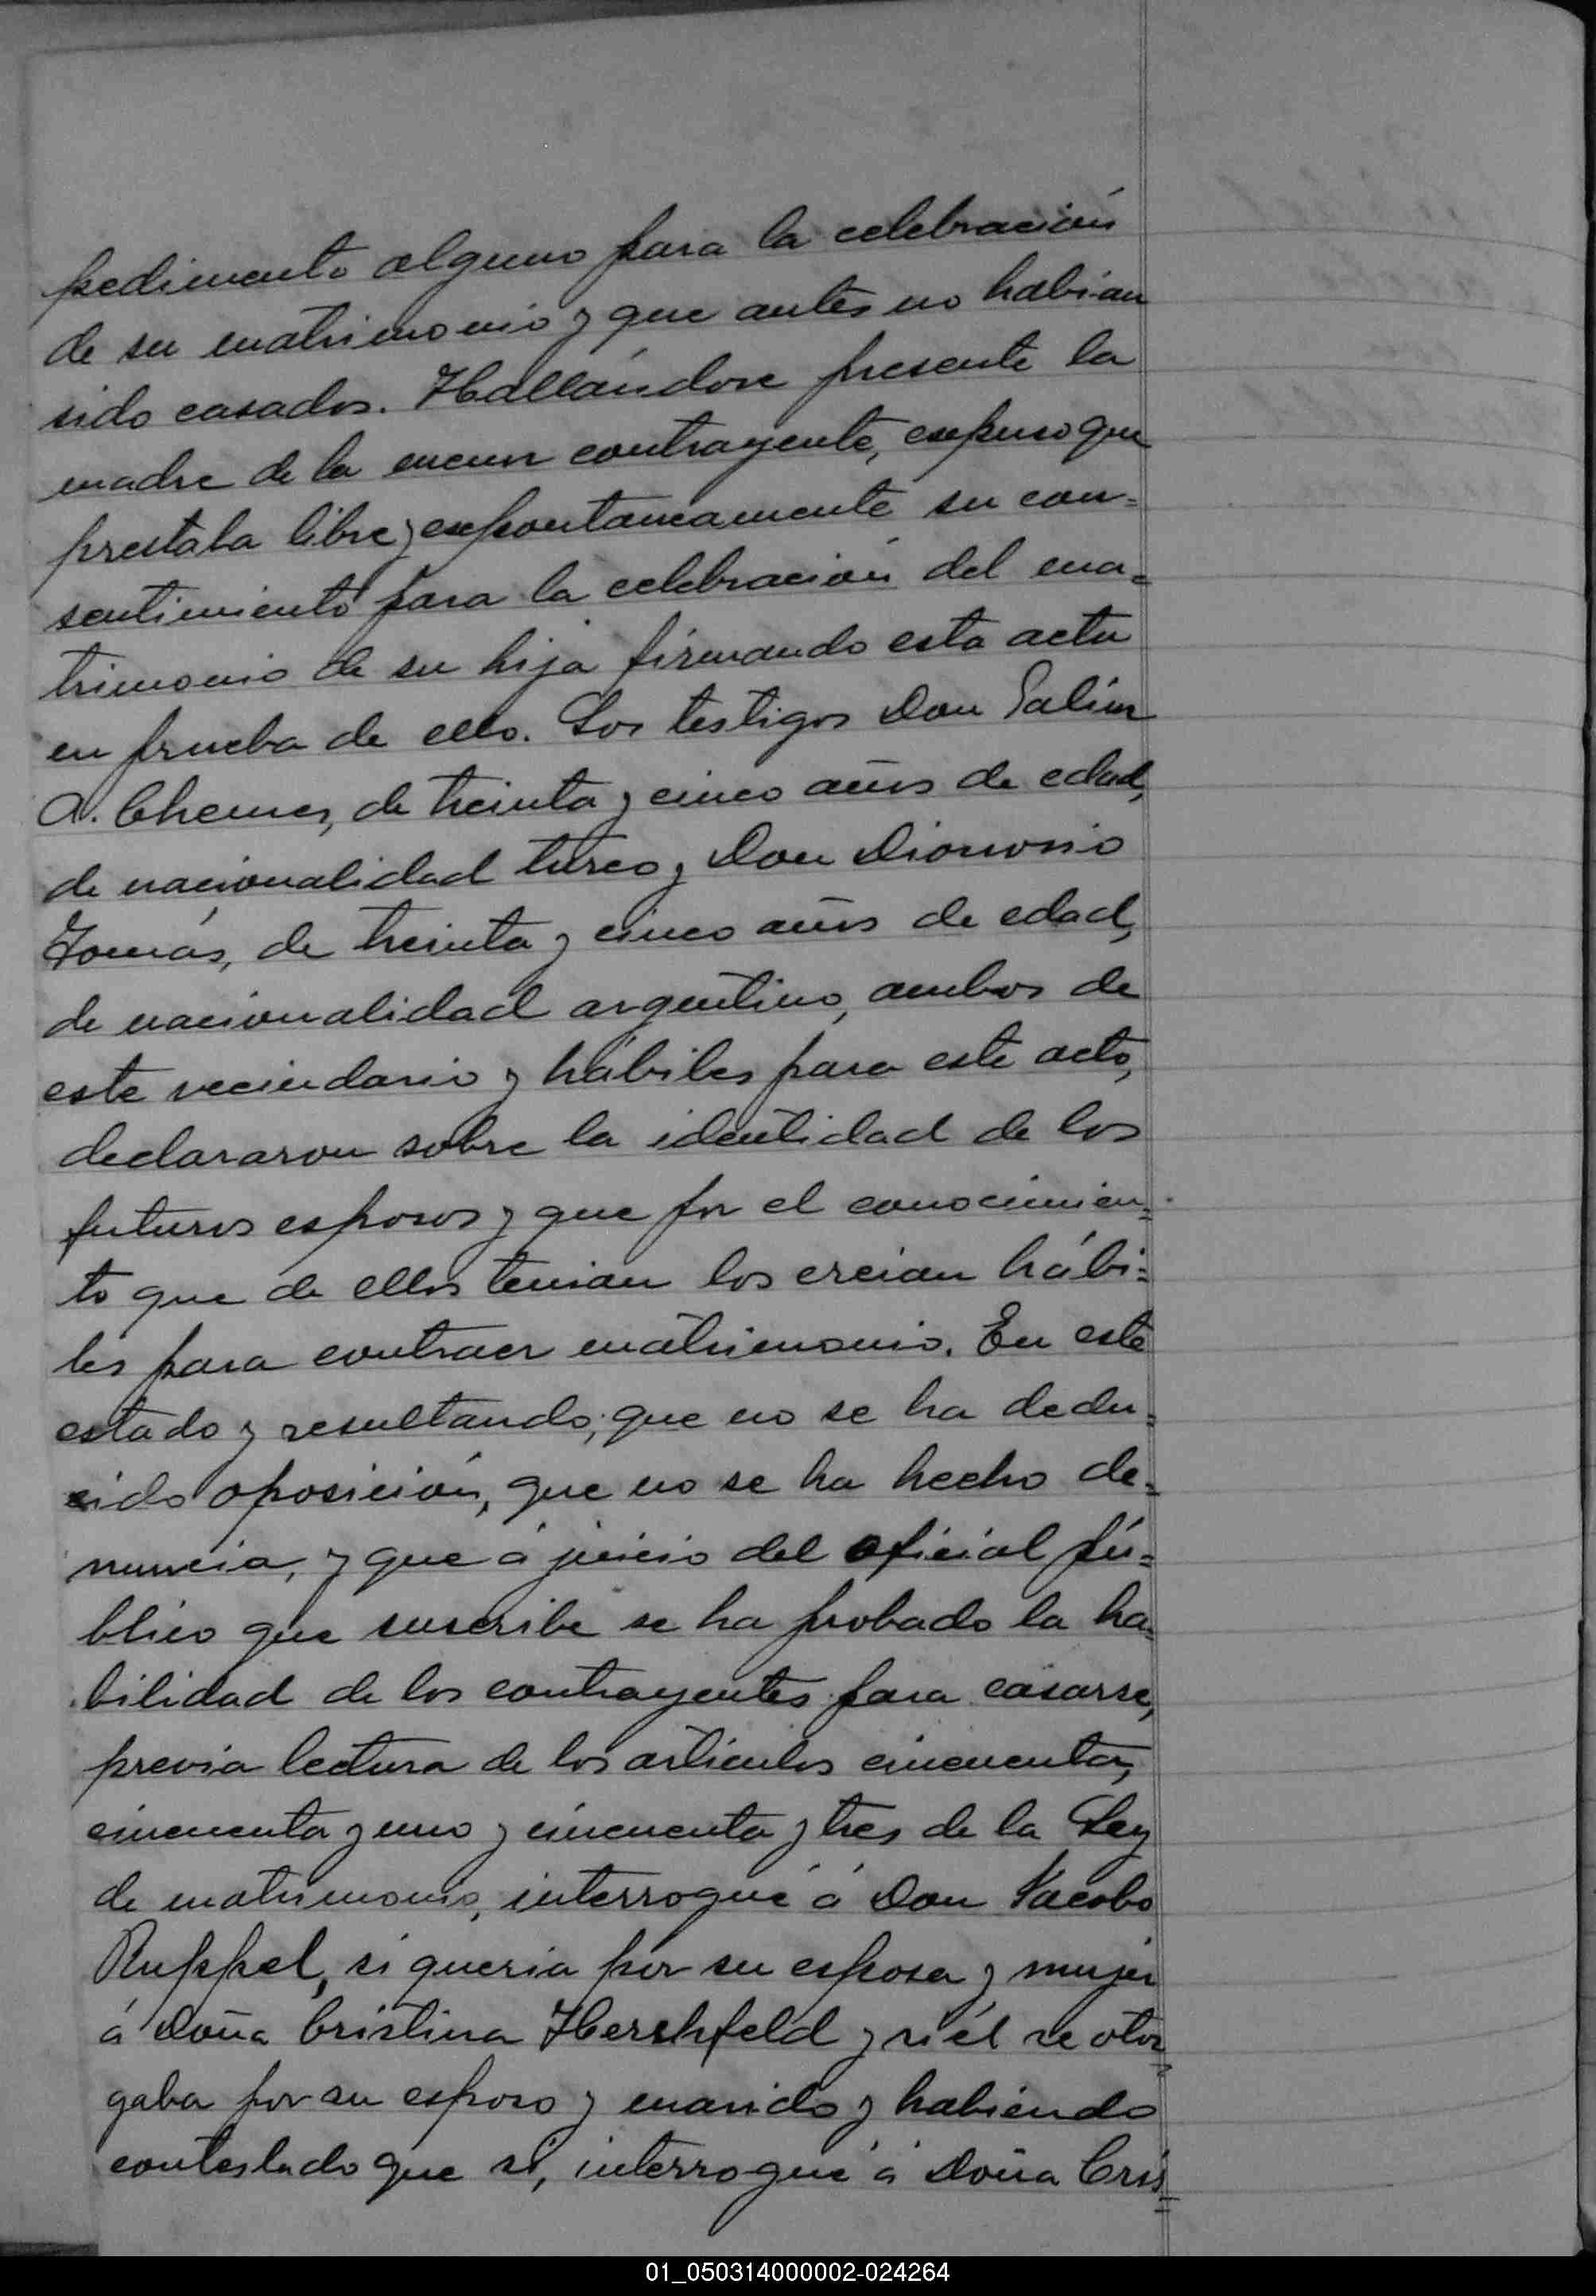 pedimento alguno para la celebración
de su matrimonio y que antes no habian
sido casados. Hallándose presente la
madre de la menor contrayente, expuso que
prestaba libre y expontaneamente su con=
sentimiento para la celebración del ma=
trimonio de su hija firmando esta acta
en prueba de ello. Los testigos Don Salim
A. Chemes, de treinta y cinco años de edad,
de nacionalidad turco y Don Dionosio
Tomás, de treinta y cinco años de edad,
de nacionalidad argentino, ambos de
este vecindario y hábiles para este acto,
declararon sobre la identidad de los
futuros esposos y que por el conocimien=
to que de ellos tenian los creian hábi=
les para contraer matrimonio. En este
estado y resultando; que no se ha dedu=
cido oposición, que no se ha hecho de=
nuncia, y que á juicio del oficial pú=
blico que suscribe se ha probado la ha=
bilidad de los contrayentes para casarse,
previa lectura de los artículos cincuenta,
cincuenta y uno y cincuenta y tres de la Ley
de matrimonio, interrogué á Don Jacobo
Ruppel, si queria por su esposa y mujer
á Doña Cristina Hershfeld y si él se otor=
gaba por su esposo y marido y habiendo
contestado que sí, interrogué á Doña Cris=
01_050314000002-024264